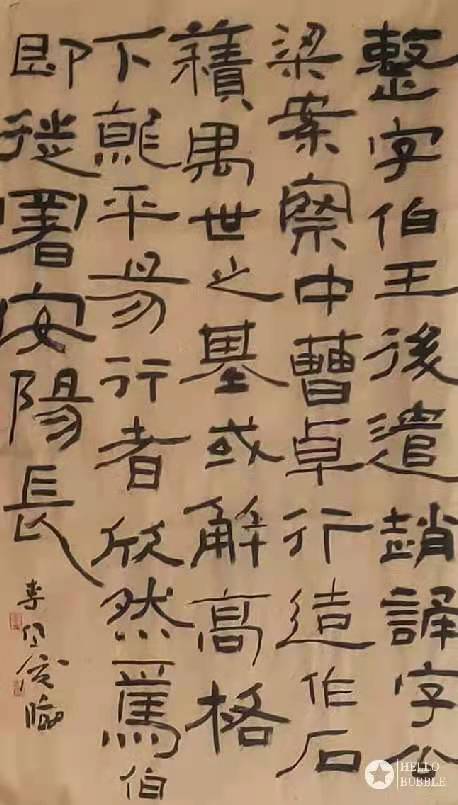 整字伯王後遣趙誦字公
梁案察中曹卓行造作石
積萬世之基或解高格
下就平易行者欣然焉伯
即徙署安陽長
李俊臨
HELLO
BUBBLE